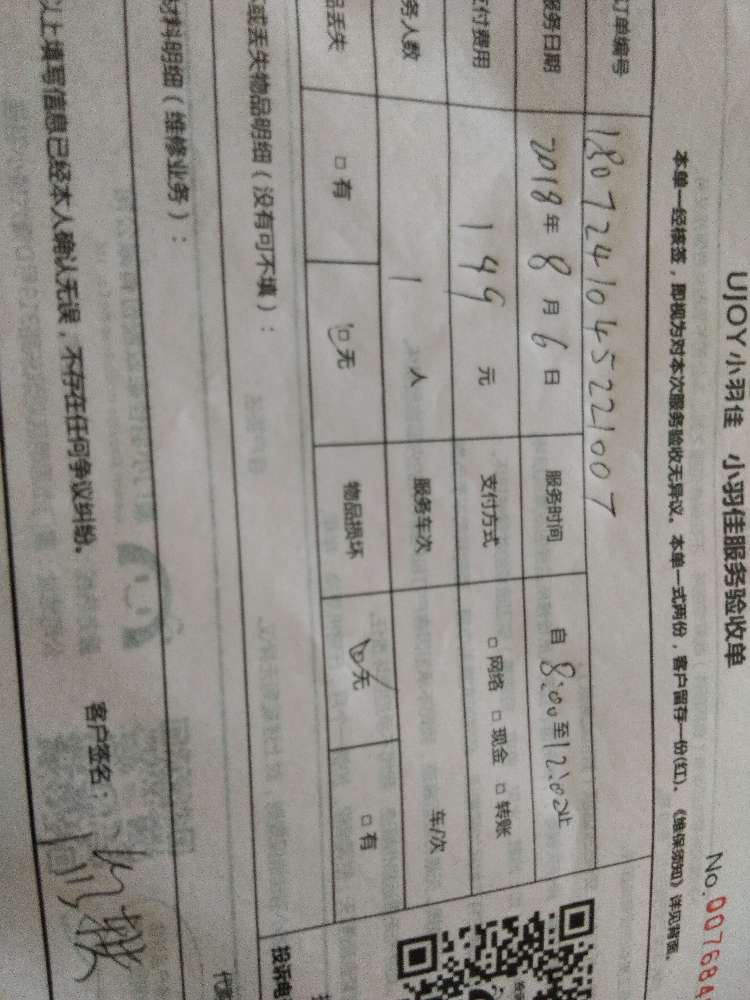 UJOY小羽佳 小羽佳服务验收单
No.007684
本单一经核签，即视为对本次服务验收无异议。本单一式两份，客户留存一份(红)。《维保须知》详见背面。
订单编号 1807241045221007
服务日期 2018年8月6日 服务时间 自8:00至12:00止
支付费用 149元 支付方式 □网络 □现金 □转账
务人数 1人 服务车次 车/次
品丢失 □有 □无 物品损坏 □无 □有
或丢失物品明细（没有可不填）：
投诉电
材料明细（维修业务）：
以上填写信息已经本人确认无误，不存在任何争议纠纷。
客户签名：